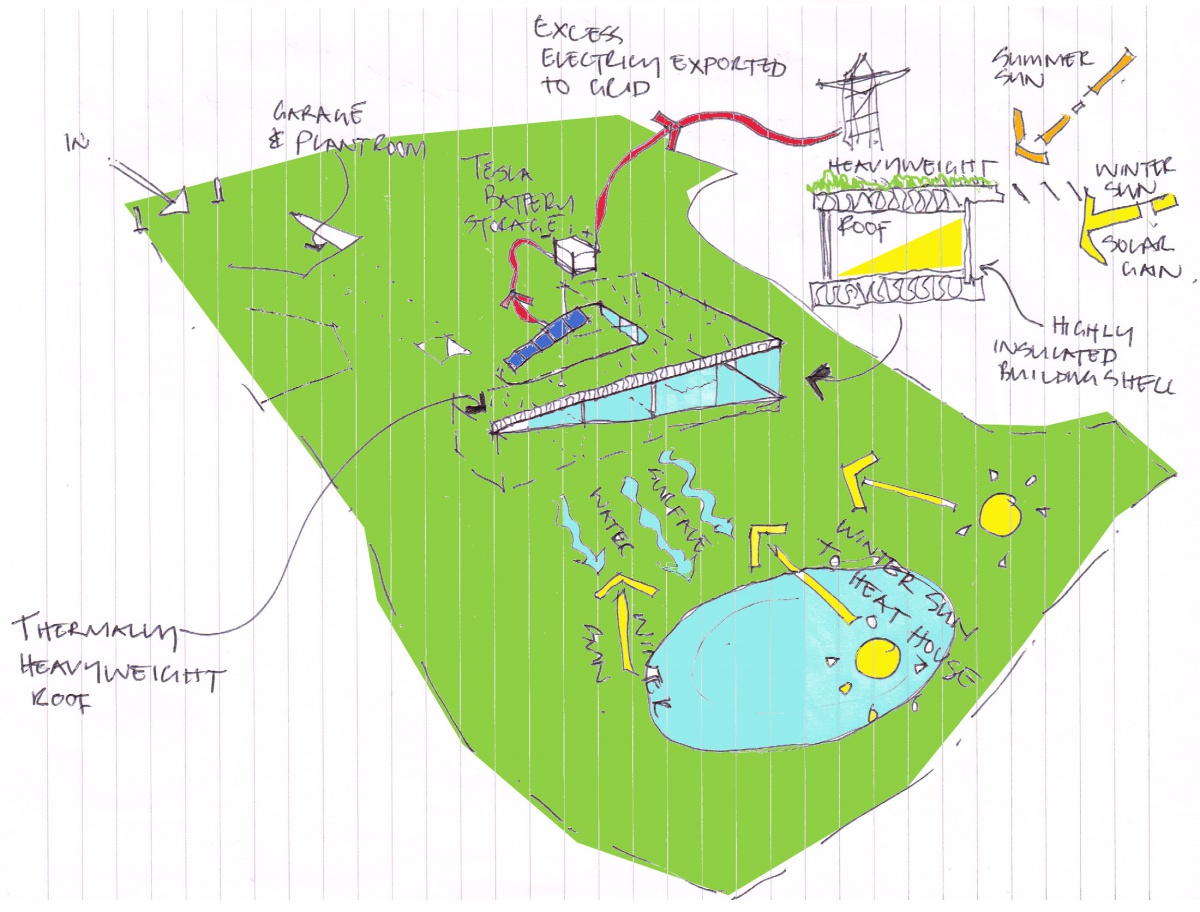 EXCESS
ELECTRICITY EXPORTED
TO GRID
SUMMER
SUN
GARAGE
& PLANTROOM
IN
TESLA
BATTERY
STORAGE
HEAVYWEIGHT
ROOF
WINTER
SUN
SOLAR
GAIN
HIGHLY
INSULATED
BUILDING SHELL
SURFACE
WATER
WINTER SUN
TO HEAT HOUSE
WINTER
SUN
THERMALLY
HEAVYWEIGHT
ROOF